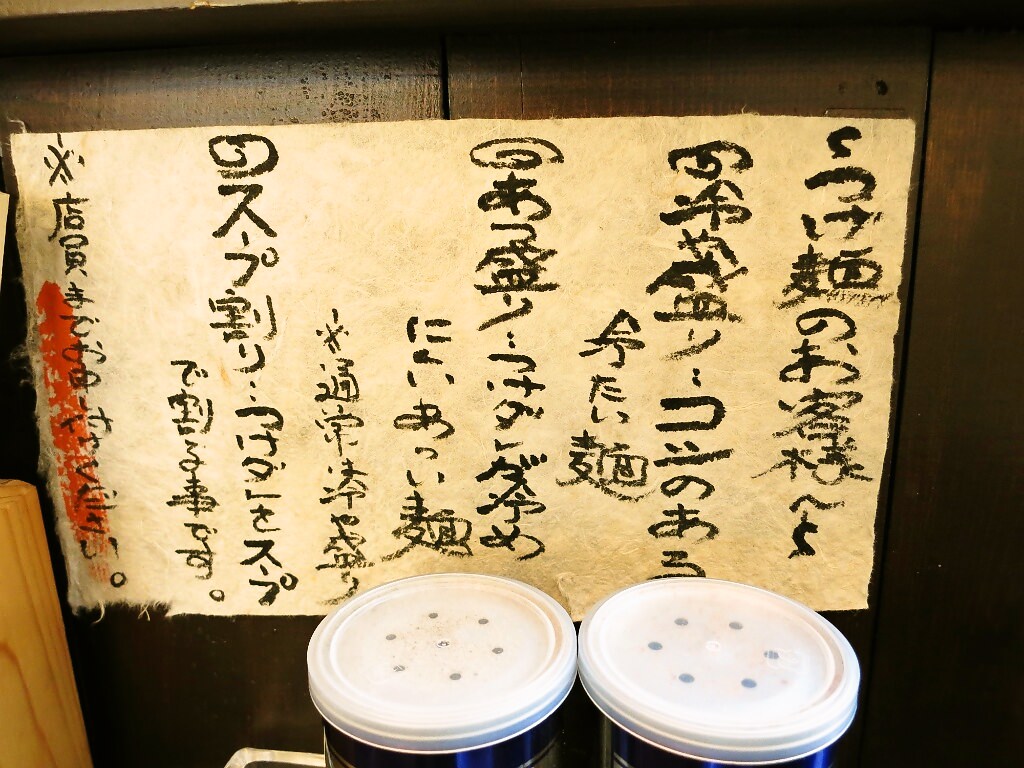 〜つけ麺のお客様へ〜
冷や盛り…コシのある
冷たい麺
あつ盛り…つけダレが冷め
にくいあつい麺
※通常冷や盛り
スープ割り…つけダレをスープ
で割る事です。
※店員までお申し付けください。